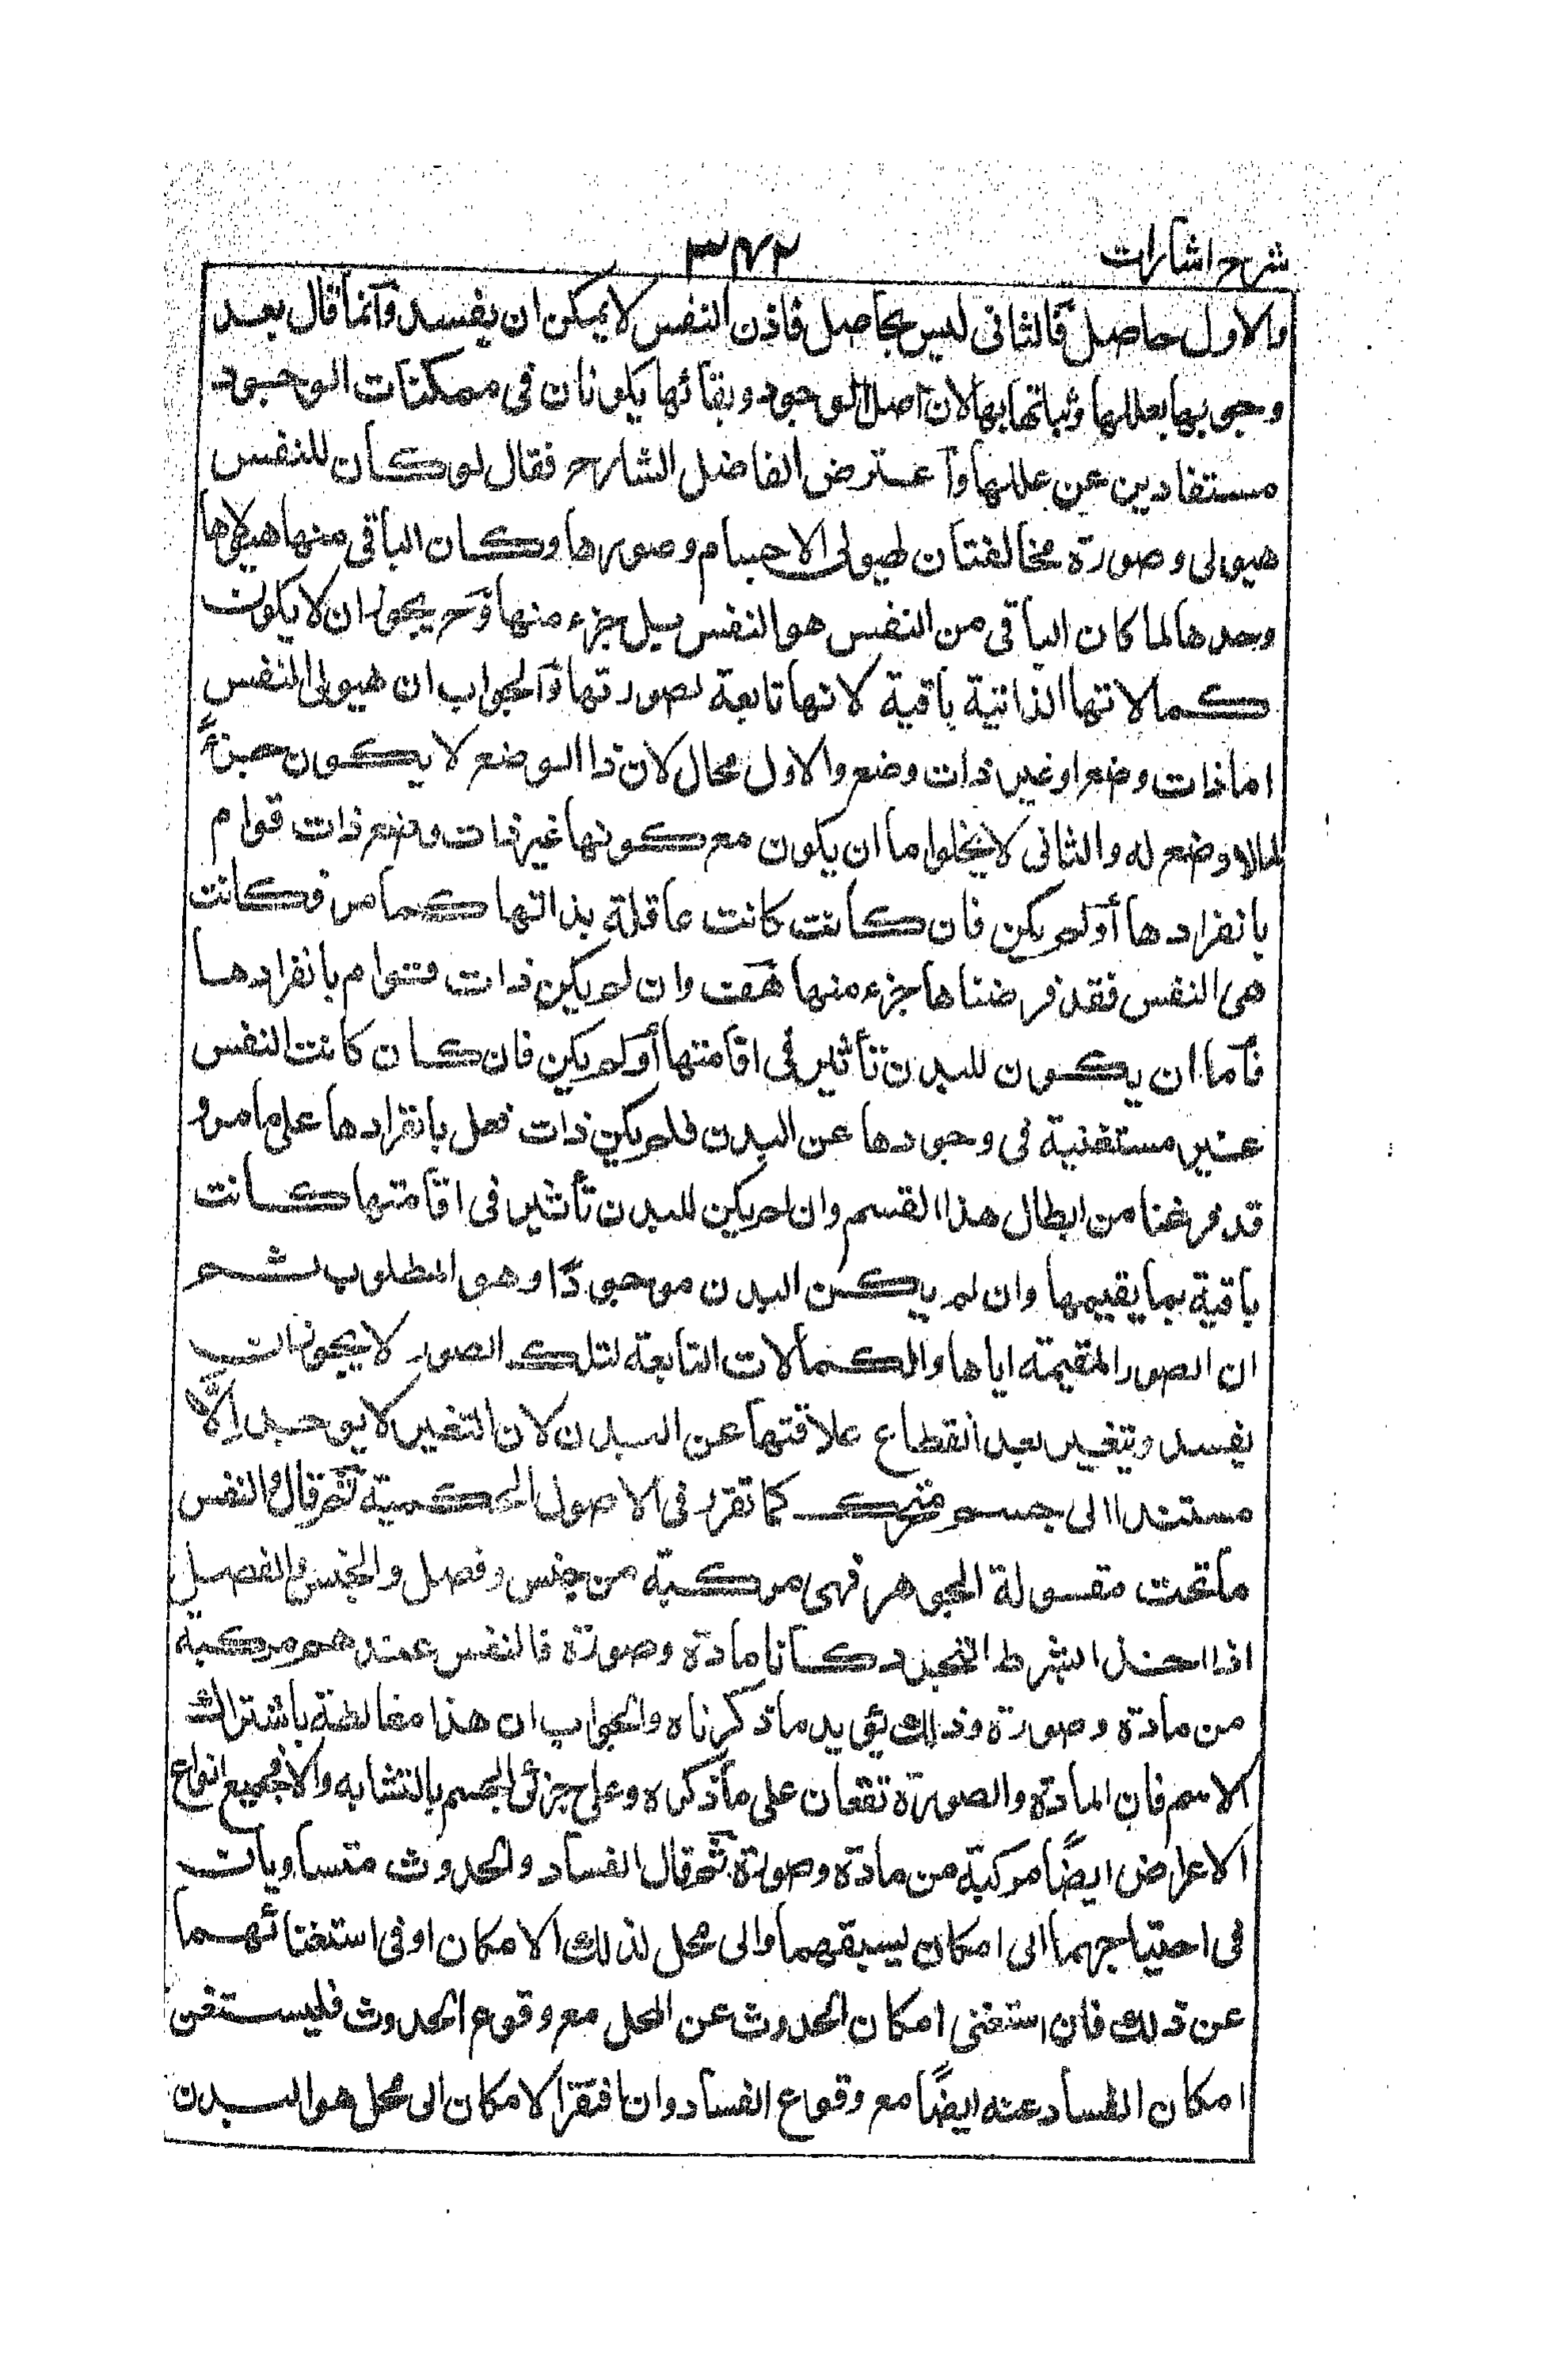 شرح اشارات ٣٤٢
والاول حاصل فالثانى ليس بحاصل فاذن النفس لا يمكن ان يفسد وانما قال بعد
وجوبها بعللها وثباتها بها لان اصل الوجود وبقائها يكونان فى ممكنات الوجود
مستفادين عن عللها واعترض الفاضل الشارح فقال لو كان للنفس
هيولى وصورة مخالفتان لهيولى الاجسام وصورها وكان الباقى منها هيولاها
وحدها لما كان الباقى من النفس هو النفس بل جزء منها وح يجوز ان لا يكون
كمالاتها الذاتية باقية لانها تابعة لصورتها والجواب ان هيولى النفس
اما ذات وضع او غير ذات وضع والاول محال لان ذا الوضع لا يكون جزءً
لما لا وضع له والثانى لا يخلو اما ان يكون مع كونها غير ذات وضع ذات قوام
بانفرادها أو لم يكن فان كانت كانت عاقلة بذاتها كما مر فكانت
هى النفس فقد فرضناها جزء منها هف وان لم يكن ذات قوام بانفرادها
فأما ان يكون للبدن تأثير فى اقامتها أو لم يكن فان كان كانت النفس
غير مستغنية فى وجودها عن البدن فلم يكن ذات فعل بانفرادها على ما مر و
قد فرغنا من ابطال هذا القسم وان لم يكن للبدن تأثير فى اقامتها كانت
باقية بما يقيمها وان لم يكن البدن موجودًا وهو المطلوب ثم
ان الصور المقيمة اياها والكمالات التابعة لتلك الصور لا يجوز ان
يفسد ويتغير بعد انقطاع علاقتها عن البدن لان التغير لا يوجد إلَّا
مستندا الى جسم متحرك كما تقرر فى الاصول الحكمية ثم قال والنفس
ما تحت مقولة الجوهر فهى مركبة من جنس وفصل والجنس والفصل
اذا اخذا بشرط التجرد كانا مادة وصورة فالنفس عندهم مركبة
من مادة وصورة وذلك يؤيد ما ذكرناه والجواب ان هذا مغالطة باشتراك
الاسم فان المادة والصورة تقعان على ما ذكره وعلى جزئى الجسم بالتشابه والا فجميع انواع
الاعراض ايضًا مركبة من مادة وصورة ثم قال الفساد والحدوث متساويان
فى احتياجهما الى امكان يسبقهما والى محل لذلك الامكان او فى استغنائهما
عن ذلك فان استغنى امكان الحدوث عن المحل مع وقوع الحدوث فليستغن
امكان الفساد عنه ايضًا مع وقوع الفساد وان افتقر الامكان الى محل هو البدن